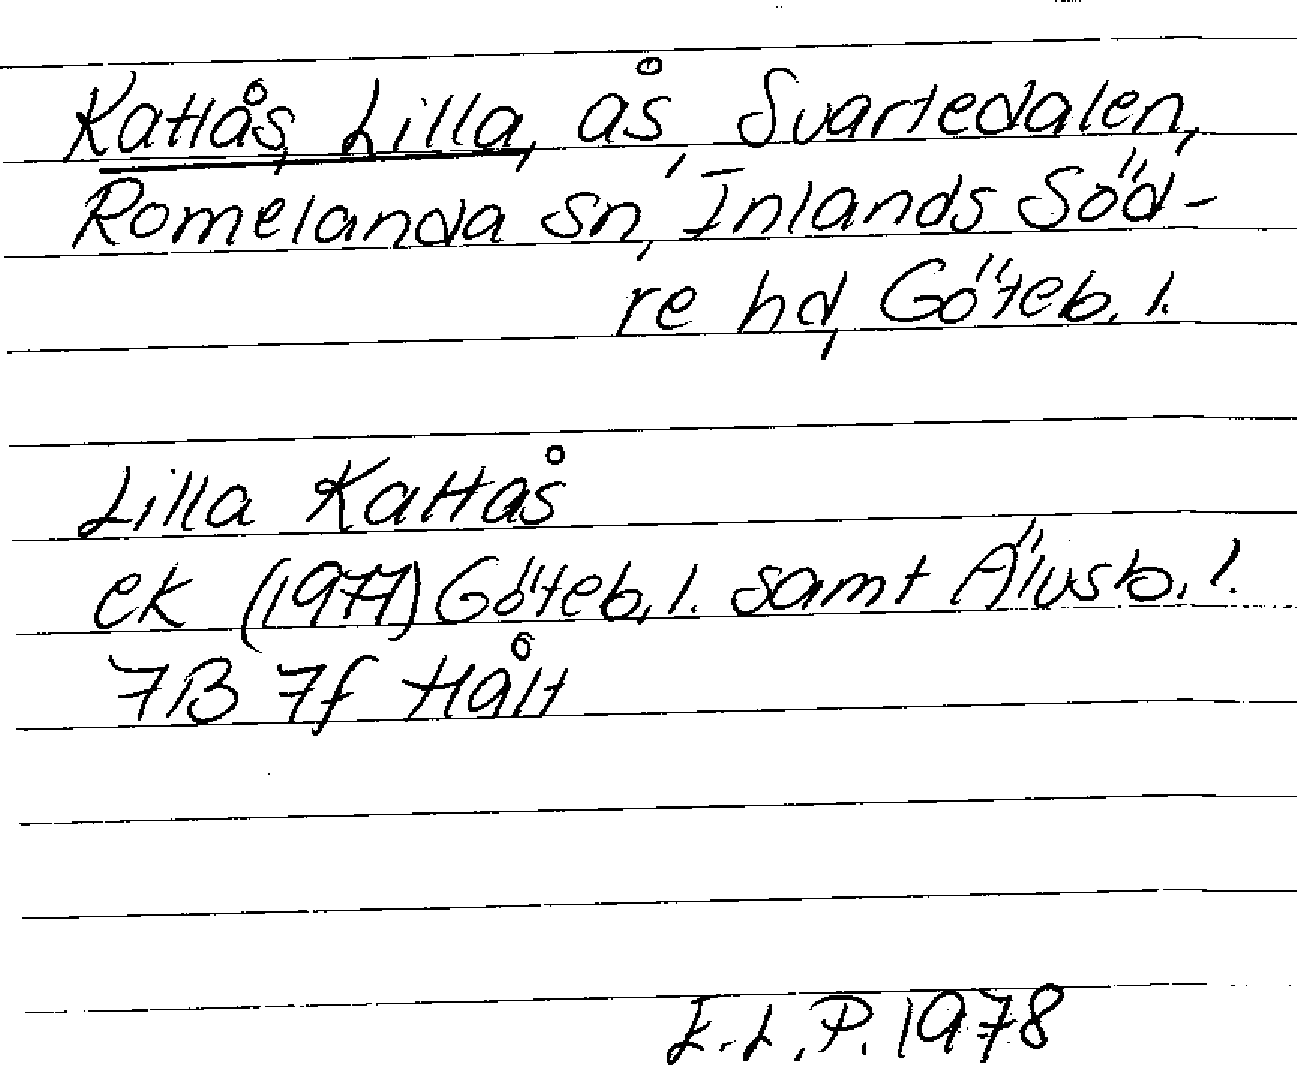 Kattås, Lilla, ås, Svartedalen,
Romelanda sn, Inlands Söd-
re hd, Göteb. l.
Lilla Kattås
ek (1977) Göteb. l. samt Älvsb. l.
7B 7f Hålt
E.L.P. 1978